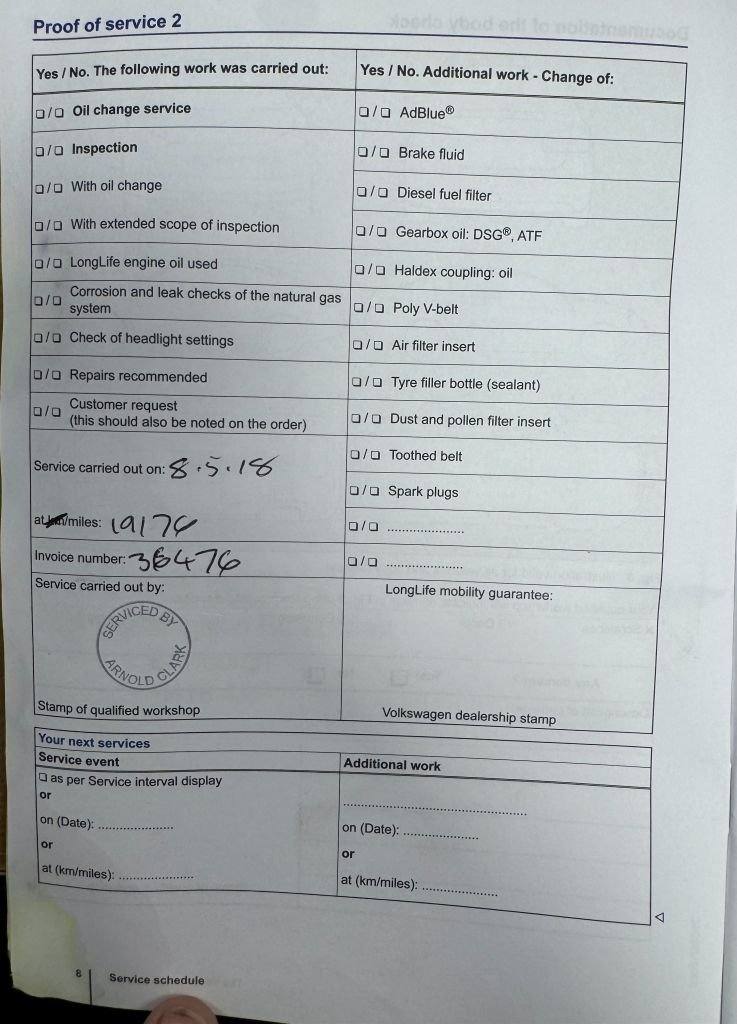 Proof of service 2
Yes / No. The following work was carried out:
❏/❏ Oil change service
❏/❏ Inspection
❏/❏ With oil change
❏/❏ With extended scope of inspection
❏/❏ LongLife engine oil used
❏/❏ Corrosion and leak checks of the natural gas
system
❏/❏ Check of headlight settings
❏/❏ Repairs recommended
❏/❏ Customer request
(this should also be noted on the order)
Service carried out on: 8.5.18
at km/miles: 19176
Invoice number: 36476
Service carried out by:
SERVICED BY
ARNOLD CLARK
Stamp of qualified workshop
Yes / No. Additional work - Change of:
❏/❏ AdBlue®
❏/❏ Brake fluid
❏/❏ Diesel fuel filter
❏/❏ Gearbox oil: DSG®, ATF
❏/❏ Haldex coupling: oil
❏/❏ Poly V-belt
❏/❏ Air filter insert
❏/❏ Tyre filler bottle (sealant)
❏/❏ Dust and pollen filter insert
❏/❏ Toothed belt
❏/❏ Spark plugs
❏/❏ .....................
❏/❏ .....................
LongLife mobility guarantee:
Volkswagen dealership stamp
Your next services
Service event
❏ as per Service interval display
or
on (Date): .....................
or
at (km/miles): .....................
Additional work
..................................................
on (Date): .....................
or
at (km/miles): .....................
8
Service schedule